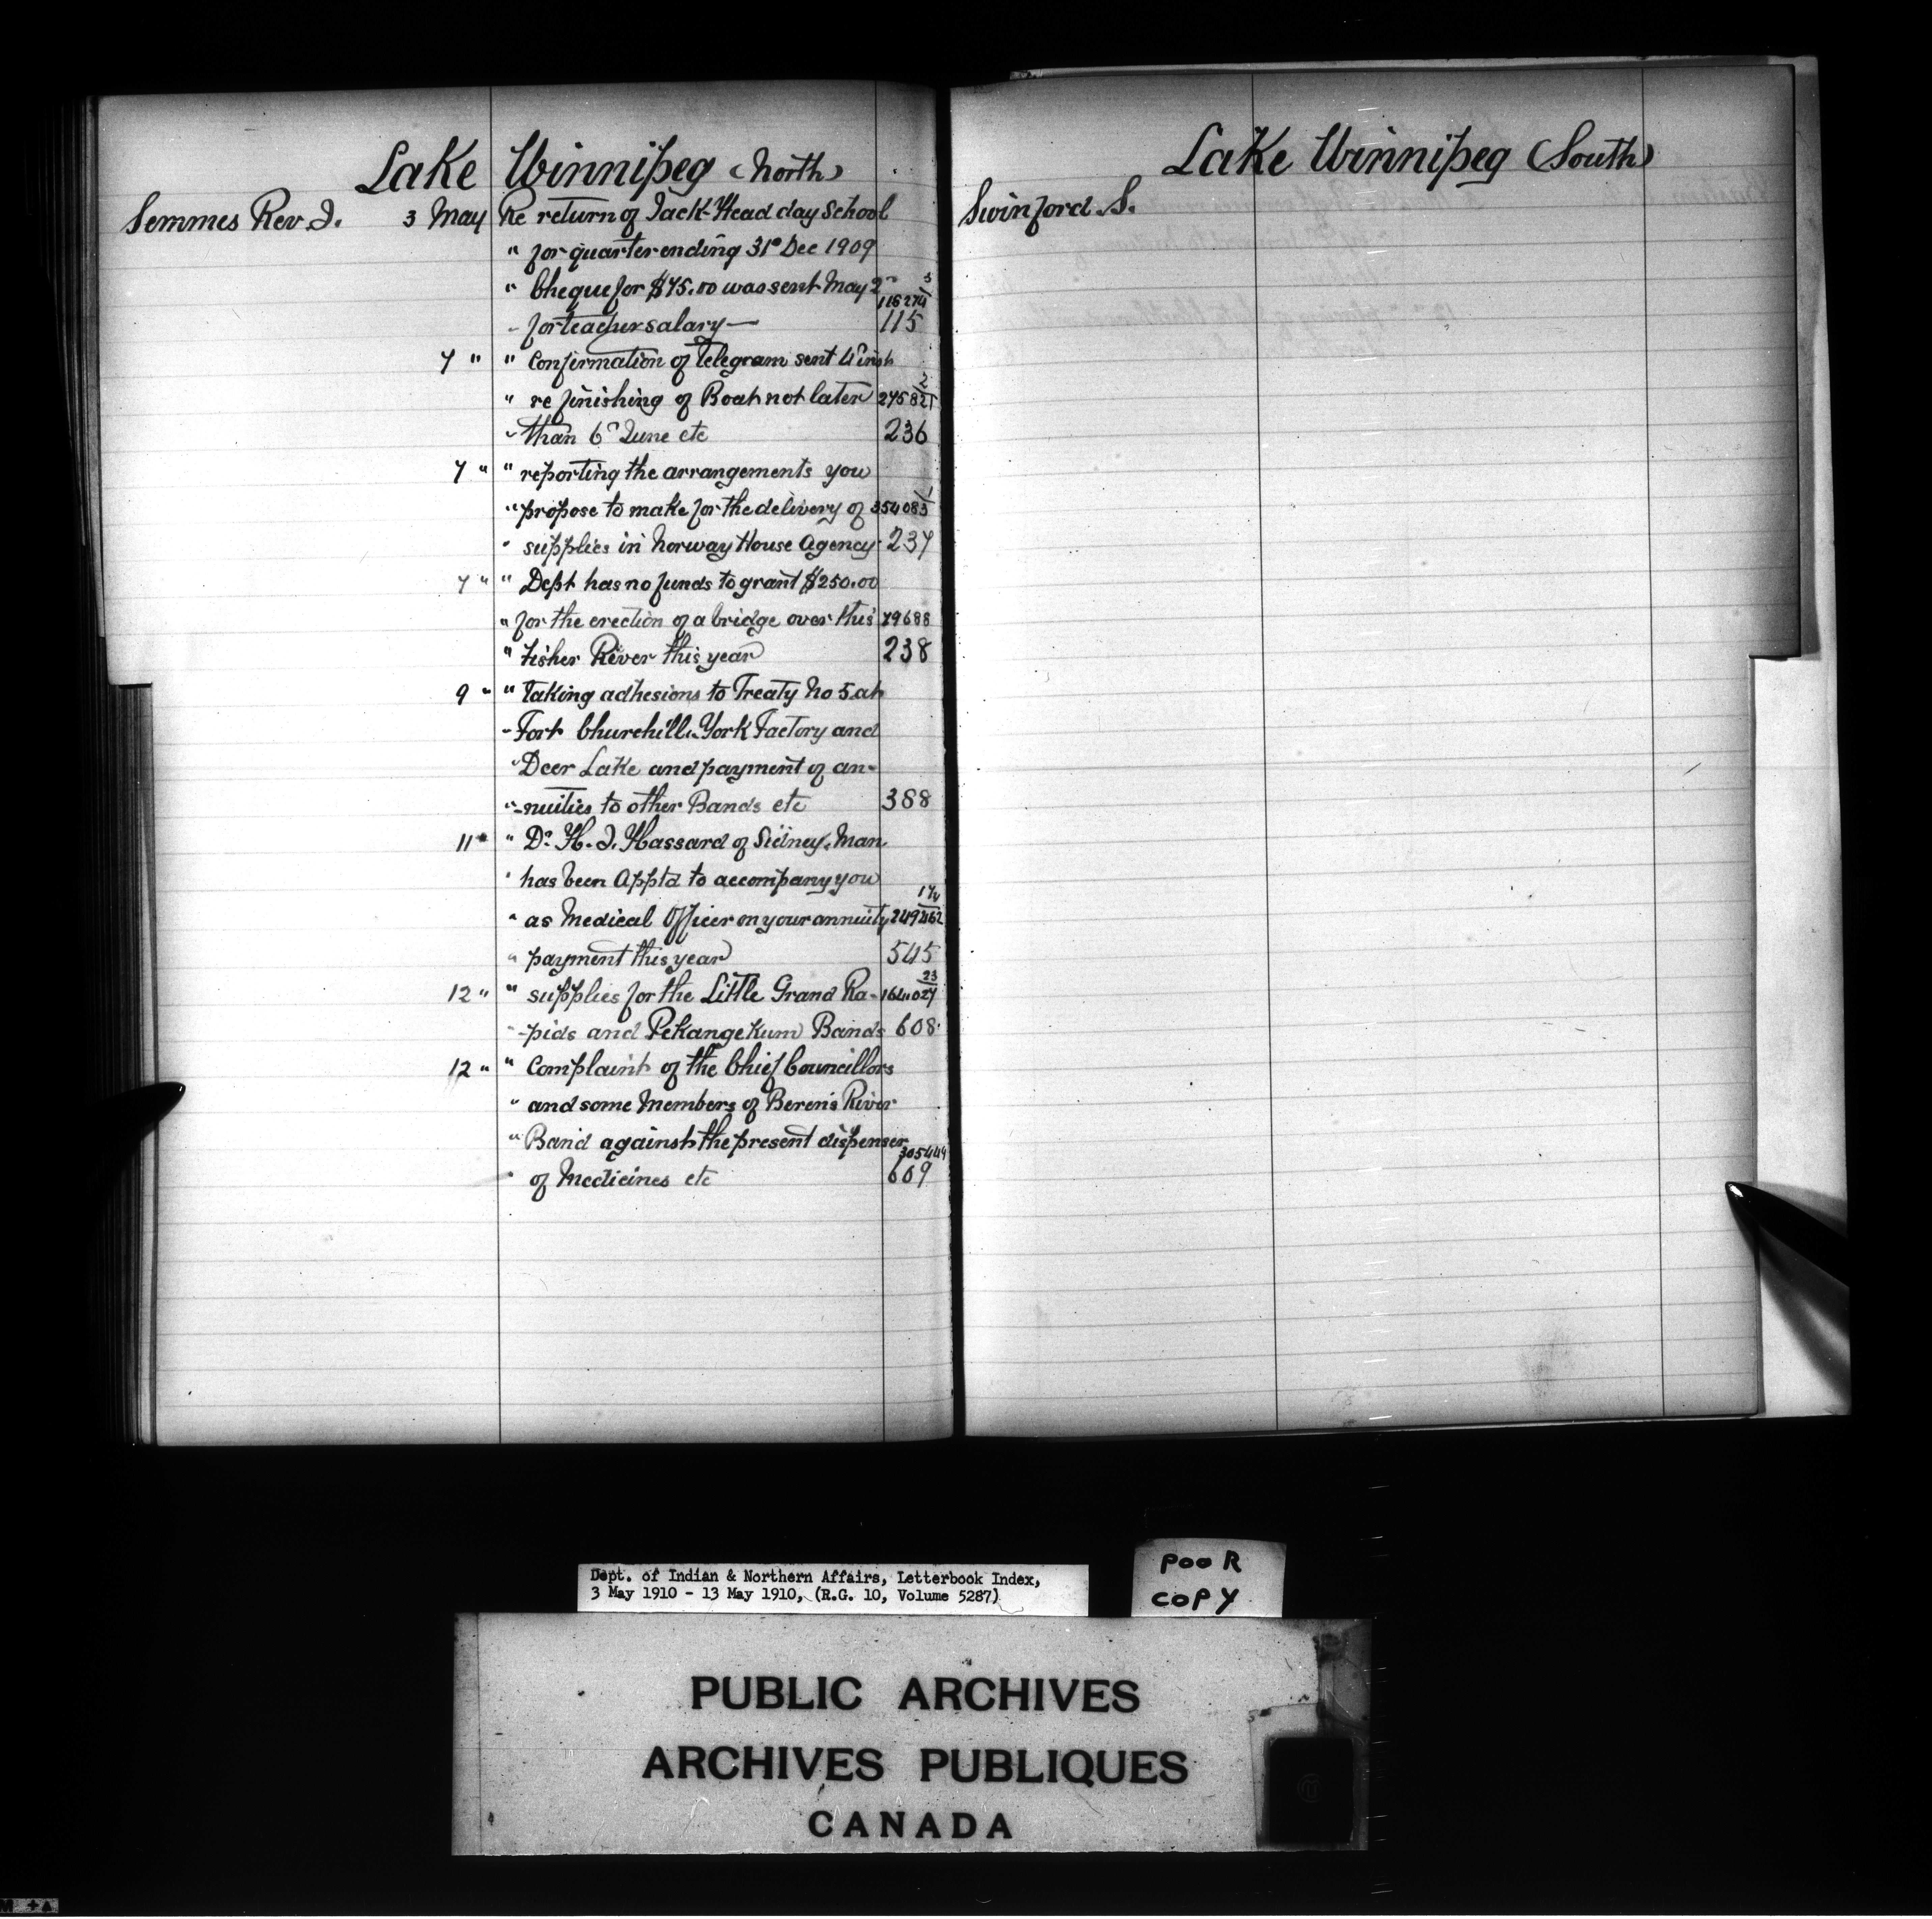 Lake Winnipeg (North)
Semmes Rev. J. 3 May Re return of Jack-Head day School
" for quarter ending 31st Dec 1909
" Cheque for $75.00 was sent May 2nd 3
116274
- for teacher salary — 115
7 " " Confirmation of telegram sent
2
" re finishing of Boat not later 275821
" than 6th June etc 236
7 " " reporting the arrangements you
1
" propose to make for the delivery of 354083
" supplies in Norway House Agency 237
7 " " Dept has no funds to grant $250.00
" for the erection of a bridge over this 79688
" Fisher River this year 238
9 " " taking adhesions to Treaty No 5 at
- Fort Churchill, York Factory and
" Deer Lake and payment of an-
" -nuities to other Bands etc 388
11 " " Dr. H. J. Hassard of Sidney, Man
" has been Apptd to accompany you
" as Medical Officer on your annuity 249462
" payment this year 545
23
12 " " supplies for the Little Grand Ra- 164027
" -pids and Pekangekum Bands 608
12 " " Complaint of the Chief Councillors
" and some Members of Beren's River
" Band against the present dispenser
305449
" of Medicines etc 609
Lake Winnipeg (South)
Swinford S.
Dept. of Indian & Northern Affairs, Letterbook Index,
3 May 1910 - 13 May 1910, (R.G. 10, Volume 5287)
POOR
COPY
PUBLIC ARCHIVES
ARCHIVES PUBLIQUES
CANADA